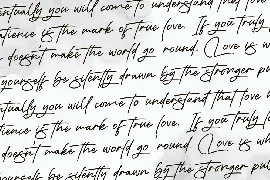 entually you will come to understand that love
atience is the mark of true love. If you truly
doesn't make the world go round. Love is wh
yourself be silently drawn by the stronger pul
ntually you will come to understand that love
tience is the mark of true love. If you truly l
doesn't make the world go round. Love is wh
yourself be silently drawn by the stronger pul